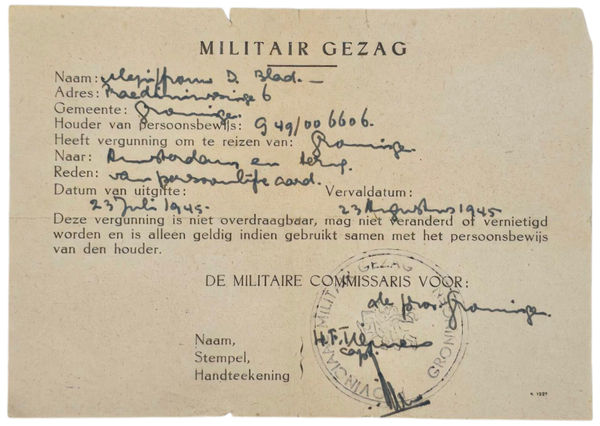 MILITAIR GEZAG
Naam: D. Blad. —
Adres: 6
Gemeente: Groningen.
Houder van persoonsbewijs: G 49/006606.
Heeft vergunning om te reizen van: Groningen.
Naar: Amsterdam en terug.
Reden: van persoonlijke aard.
Datum van uitgifte: Vervaldatum:
23 Juli 1945. 23 Augustus 1945
Deze vergunning is niet overdraagbaar, mag niet veranderd of vernietigd
worden en is alleen geldig indien gebruikt samen met het persoonsbewijs
van den houder.
DE MILITAIRE COMMISSARIS VOOR:
de prov. Groningen.
MILITAIR GEZAG
GRONINGEN
H.F.
capt.
Naam,
Stempel,
Handteekening